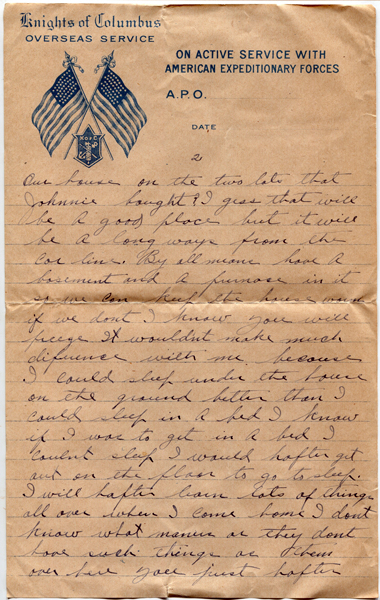 Knights of Columbus
OVERSEAS SERVICE
ON ACTIVE SERVICE WITH
AMERICAN EXPEDITIONARY FORCES
A.P.O.
DATE
2
our house on the two lots that
Johnnie bought? I gess that will
be a good place but it will
be a long ways from the
car line. By all means have a
basement and a furnose in it
so we can keep the house warm
if we dont I know you will
freeze It wouldnt make much
difirence with me because
I could sleep under the house
on the ground better than I
could sleep in a bed I know
if I was to get in a bed I
couldnt sleep I would hafter get
out on the floor to go to sleep.
I will hafter learn lots of things
all over when I come home I dont
know what maners ar they dont
have such things as them
over here you just hafter